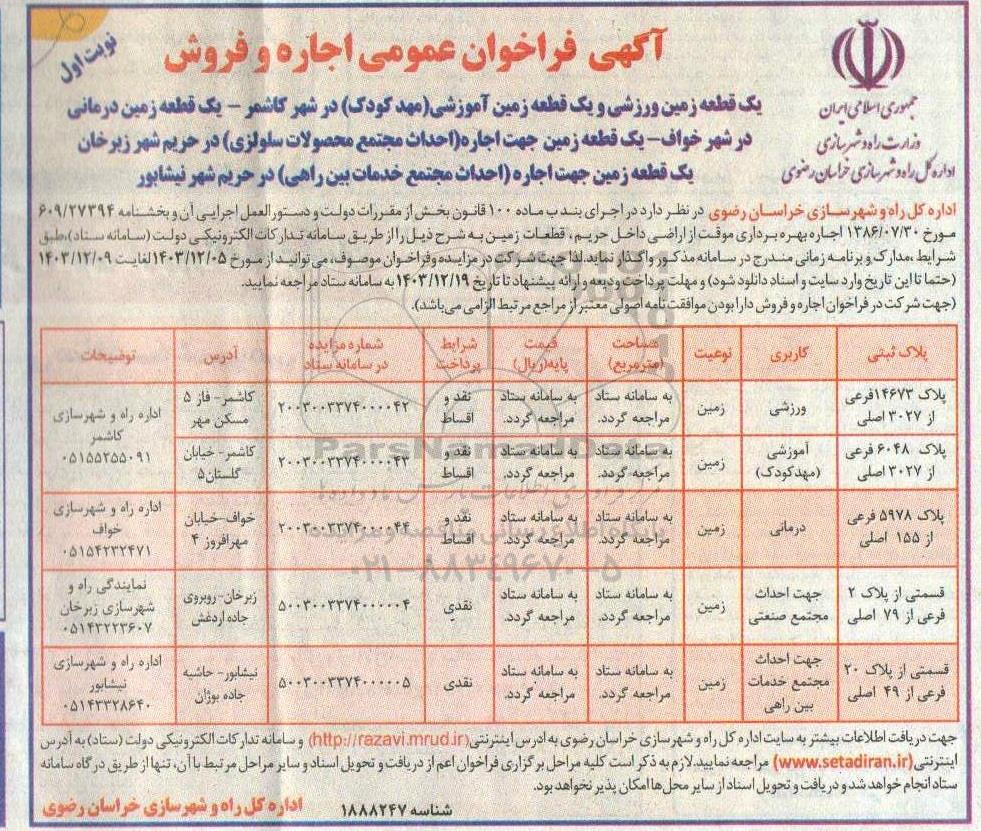 نوبت اول
آگهی فراخوان عمومی اجاره و فروش
یک قطعه زمین ورزشی و یک قطعه زمین آموزشی(مهد کودک) در شهر کاشمر - یک قطعه زمین درمانی
در شهر خواف- یک قطعه زمین جهت اجاره(احداث مجتمع محصولات سلولزی) در حریم شهر زبرخان
یک قطعه زمین جهت اجاره (احداث مجتمع خدمات بین راهی) در حریم شهر نیشابور
جمهوری اسلامی ایران
وزارت راه و شهرسازی
اداره کل راه و شهرسازی خراسان رضوی
اداره کل راه و شهرسازی خراسان رضوی در نظر دارد در اجرای بند ب ماده ۱۰۰ قانون بخش از مقررات دولت و دستورالعمل اجرایی آن و بخشنامه ۶۰۹/۲۷۳۹۴
مورخ ۱۳۸۶/۰۷/۳۰ اجاره بهره برداری موقت از اراضی داخل حریم، قطعات زمین به شرح ذیل را از طریق سامانه تدارکات الکترونیکی دولت (سامانه ستاد)،طبق
شرایط ،مدارک و برنامه زمانی مندرج در سامانه مذکور واگذار نماید.لذا جهت شرکت در مزایده وفراخوان موصوف، می توانید از مورخ ۱۴۰۳/۱۲/۰۵لغایت ۱۴۰۳/۱۲/۰۹
(حتما تا این تاریخ وارد سایت و اسناد دانلود شود) و مهلت پرداخت ودیعه و ارائه پیشنهاد تا تاریخ ۱۴۰۳/۱۲/۱۹ به سامانه ستاد مراجعه نمایید.
(جهت شرکت در فراخوان اجاره و فروش دارا بودن موافقت نامه اصولی معتبر از مراجع مرتبط الزامی می‌باشد).
پلاک ثبتی کاربری نوعیت مساحت (مترمربع) قیمت پایه(ریال) شرایط پرداخت شماره مزایده در سامانه ستاد آدرس توضیحات
پلاک ۱۴۶۷۳فرعی از ۳۰۲۷ اصلی ورزشی زمین به سامانه ستاد مراجعه گردد. به سامانه ستاد مراجعه گردد. نقد و اقساط ۲۰۰۳۰۰۳۳۷۴۰۰۰۰۴۲ کاشمر- فاز ۵ مسکن مهر اداره راه و شهرسازی کاشمر ۰۵۱۵۵۲۵۵۰۹۱
پلاک ۶۰۴۸ فرعی از ۳۰۲۷ اصلی آموزشی (مهدکودک) زمین به سامانه ستاد مراجعه گردد. به سامانه ستاد مراجعه گردد. نقد و اقساط ۲۰۰۳۰۰۳۳۷۴۰۰۰۰۴۳ کاشمر- خیابان گلستان۵
پلاک ۵۹۷۸ فرعی از ۱۵۵ اصلی درمانی زمین به سامانه ستاد مراجعه گردد. به سامانه ستاد مراجعه گردد. نقد و اقساط ۲۰۰۳۰۰۳۳۷۴۰۰۰۰۴۴ خواف-خیابان مهرافروز ۴ اداره راه و شهرسازی خواف ۰۵۱۵۴۲۳۲۴۷۱
قسمتی از پلاک ۲ فرعی از ۷۹ اصلی جهت احداث مجتمع صنعتی زمین به سامانه ستاد مراجعه گردد. به سامانه ستاد مراجعه گردد. نقدی ۵۰۰۳۰۰۳۳۷۴۰۰۰۰۰۴ زبرخان-روبروی جاده اردغش نمایندگی راه و شهرسازی زبرخان ۰۵۱۴۳۲۲۳۶۰۷
قسمتی از پلاک ۲۰ فرعی از ۴۹ اصلی جهت احداث مجتمع خدمات بین راهی زمین به سامانه ستاد مراجعه گردد. به سامانه ستاد مراجعه گردد. نقدی ۵۰۰۳۰۰۳۳۷۴۰۰۰۰۰۵ نیشابور- حاشیه جاده بوژان اداره راه و شهرسازی نیشابور ۰۵۱۴۳۳۲۸۶۴۰
ParsNamadData
۰۲۱-۸۸۳۴۹۶۷۰-۵
جهت دریافت اطلاعات بیشتر به سایت اداره کل راه و شهرسازی خراسان رضوی به ادرس اینترنتی(http://razavi.mrud.ir) و سامانه تدارکات الکترونیکی دولت (ستاد) به آدرس
اینترنتی(www.setadiran.ir) مراجعه نمایید.لازم به ذکر است کلیه مراحل برگزاری فراخوان اعم از دریافت و تحویل اسناد و سایر مراحل مرتبط با آن، تنها از طریق درگاه سامانه
ستاد انجام خواهد شد و دریافت و تحویل اسناد از سایر محل‌ها امکان پذیر نخواهد بود.
شناسه ۱۸۸۸۲۴۷
اداره کل راه و شهرسازی خراسان رضوی